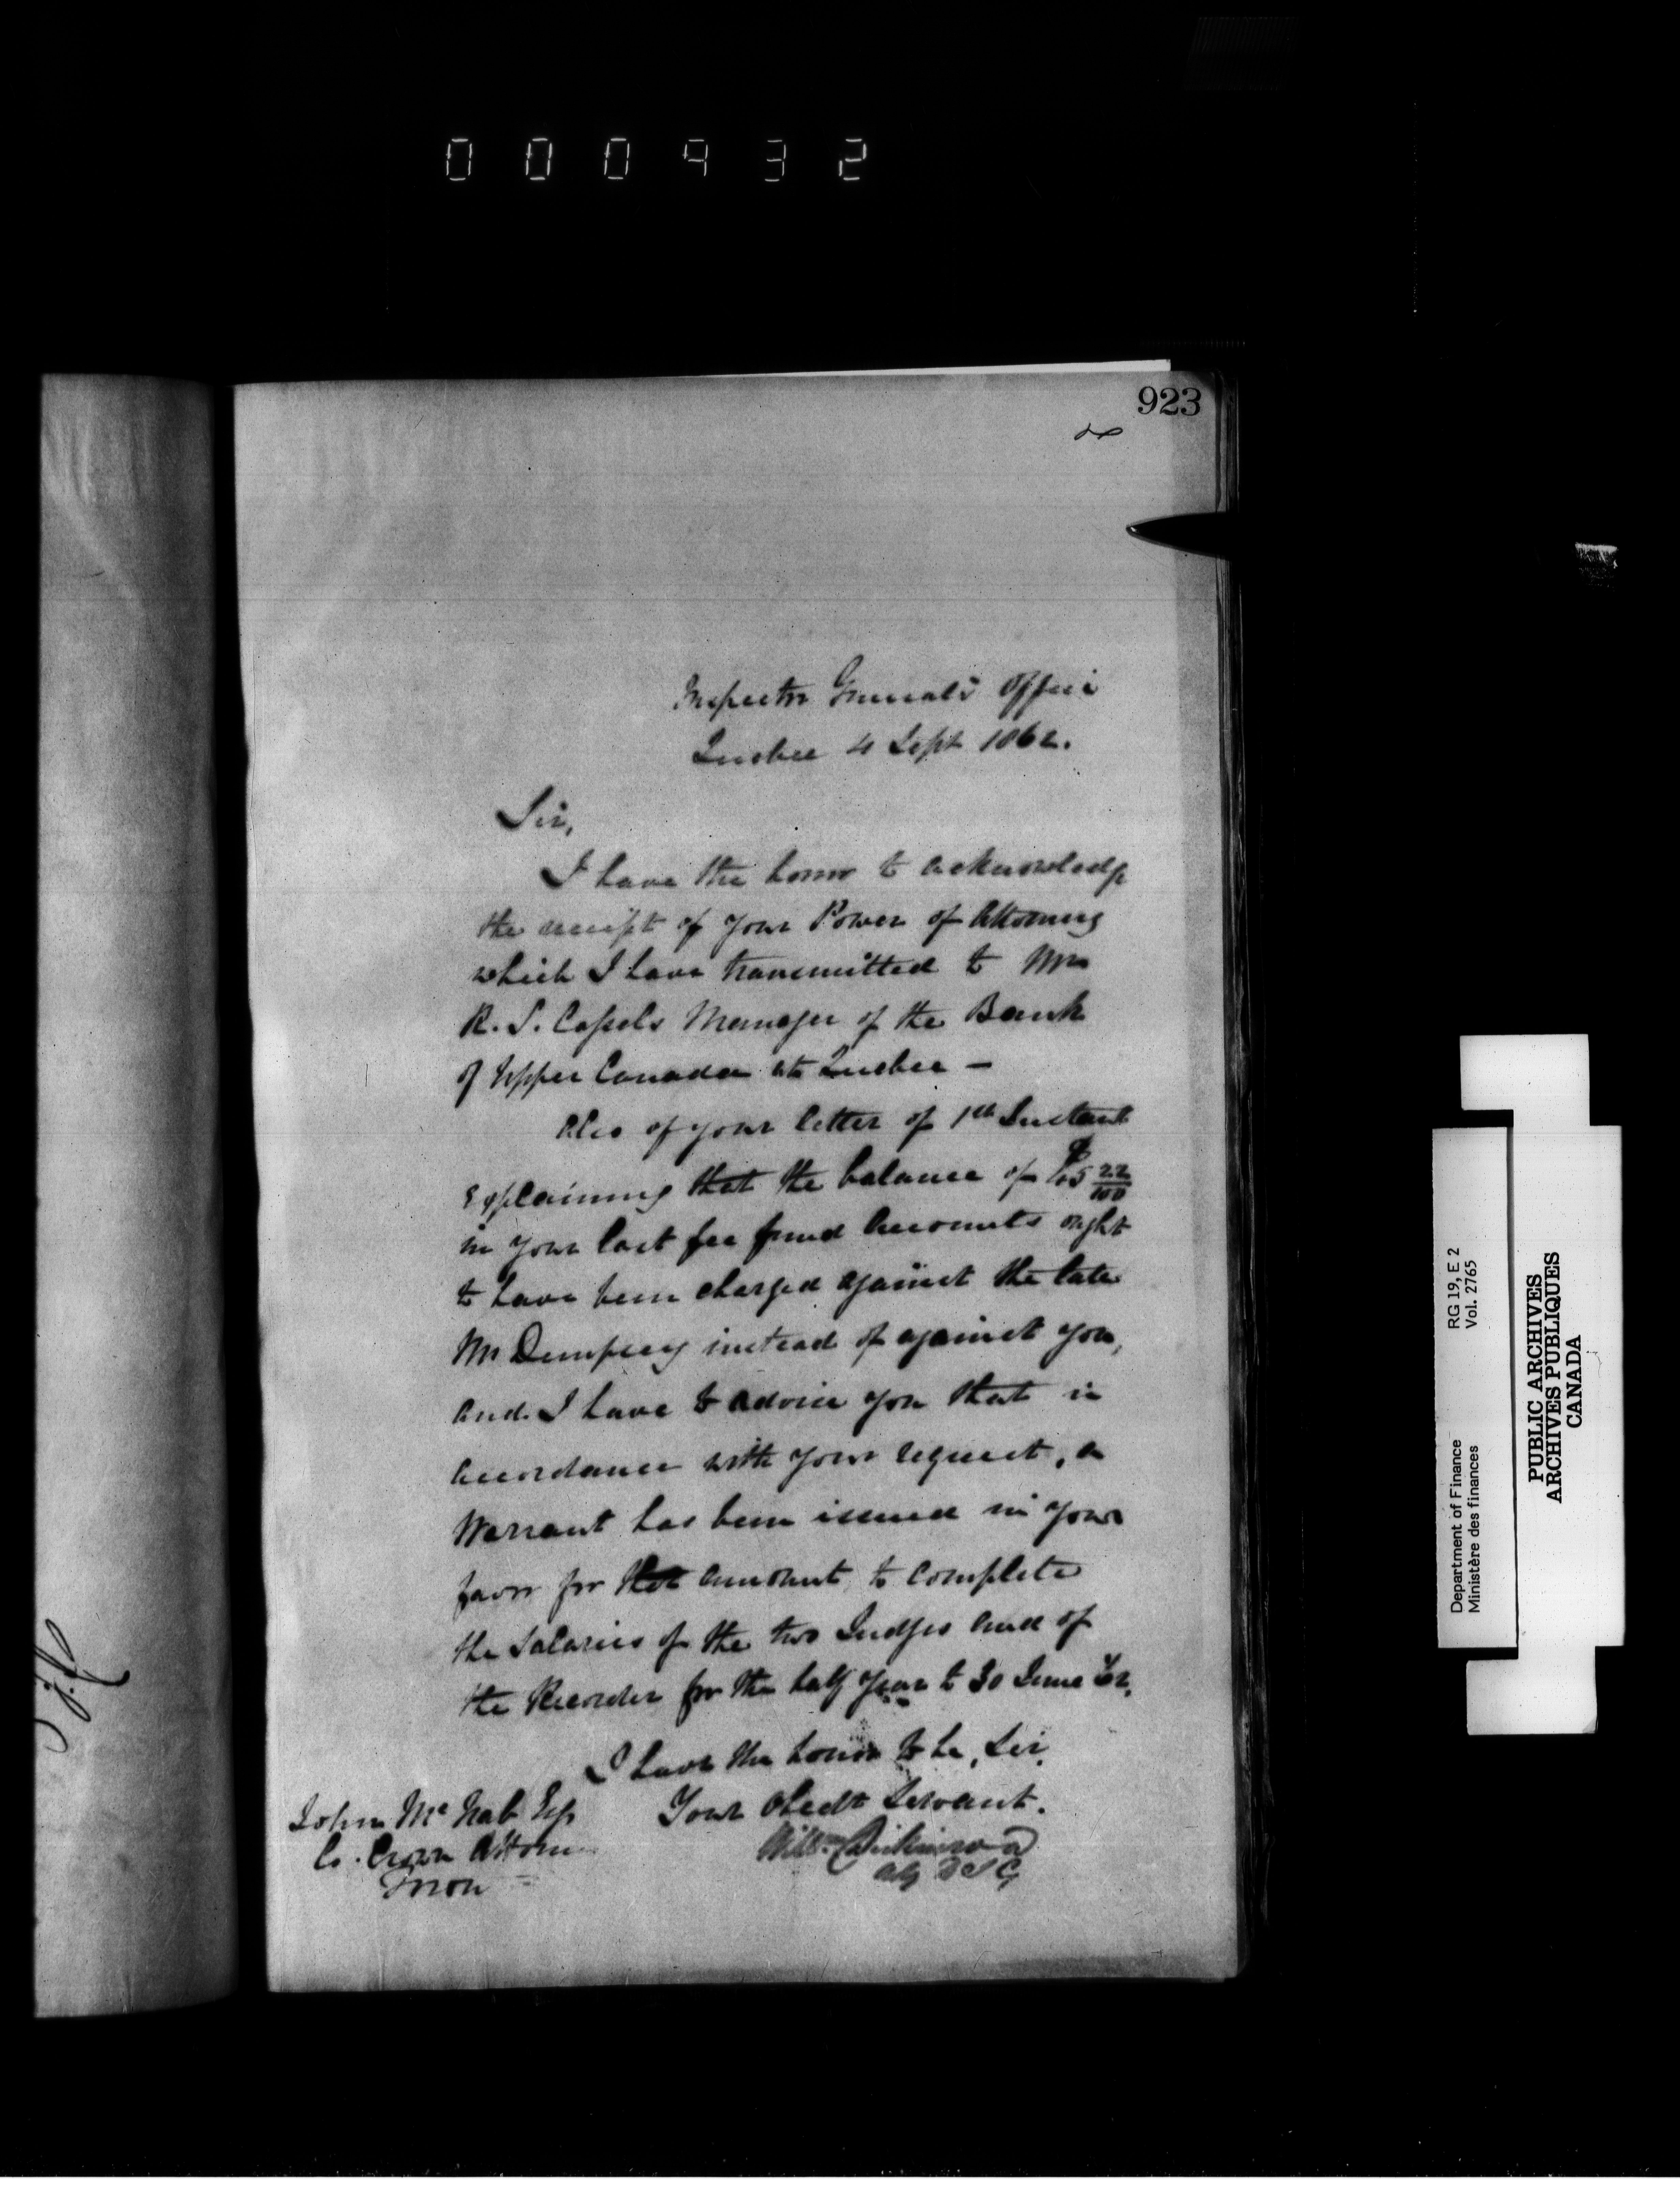 000932
923
Inspector General's Office
Quebec 4 Sept 1862.
Sir,
I have the honor to acknowledge
the receipt of your Power of Attorney
which I have transmitted to Mr
R. S. Cassels Manager of the Bank
of Upper Canada at Quebec —
Also of your letter of 1st Instant
explaining that the balance of $ 22/100
in your last fee fund Accounts ought
to have been charged against the late
Mr Dempsey instead of against you,
and I have to advise you that in
accordance with your request, a
Warrant has been issued in your
favor for that amount to complete
the Salaries of the two Judges and of
the Recorder for the half year to 30 June 62.
I have the honor to be, Sir,
Your Obedt Servant.
Willm Dickinson
D I G
John McNab Esq
Co. Crown Attorn
Toron
Department of Finance
Ministère des finances
RG 19, E 2
Vol. 2765
PUBLIC ARCHIVES
ARCHIVES PUBLIQUES
CANADA